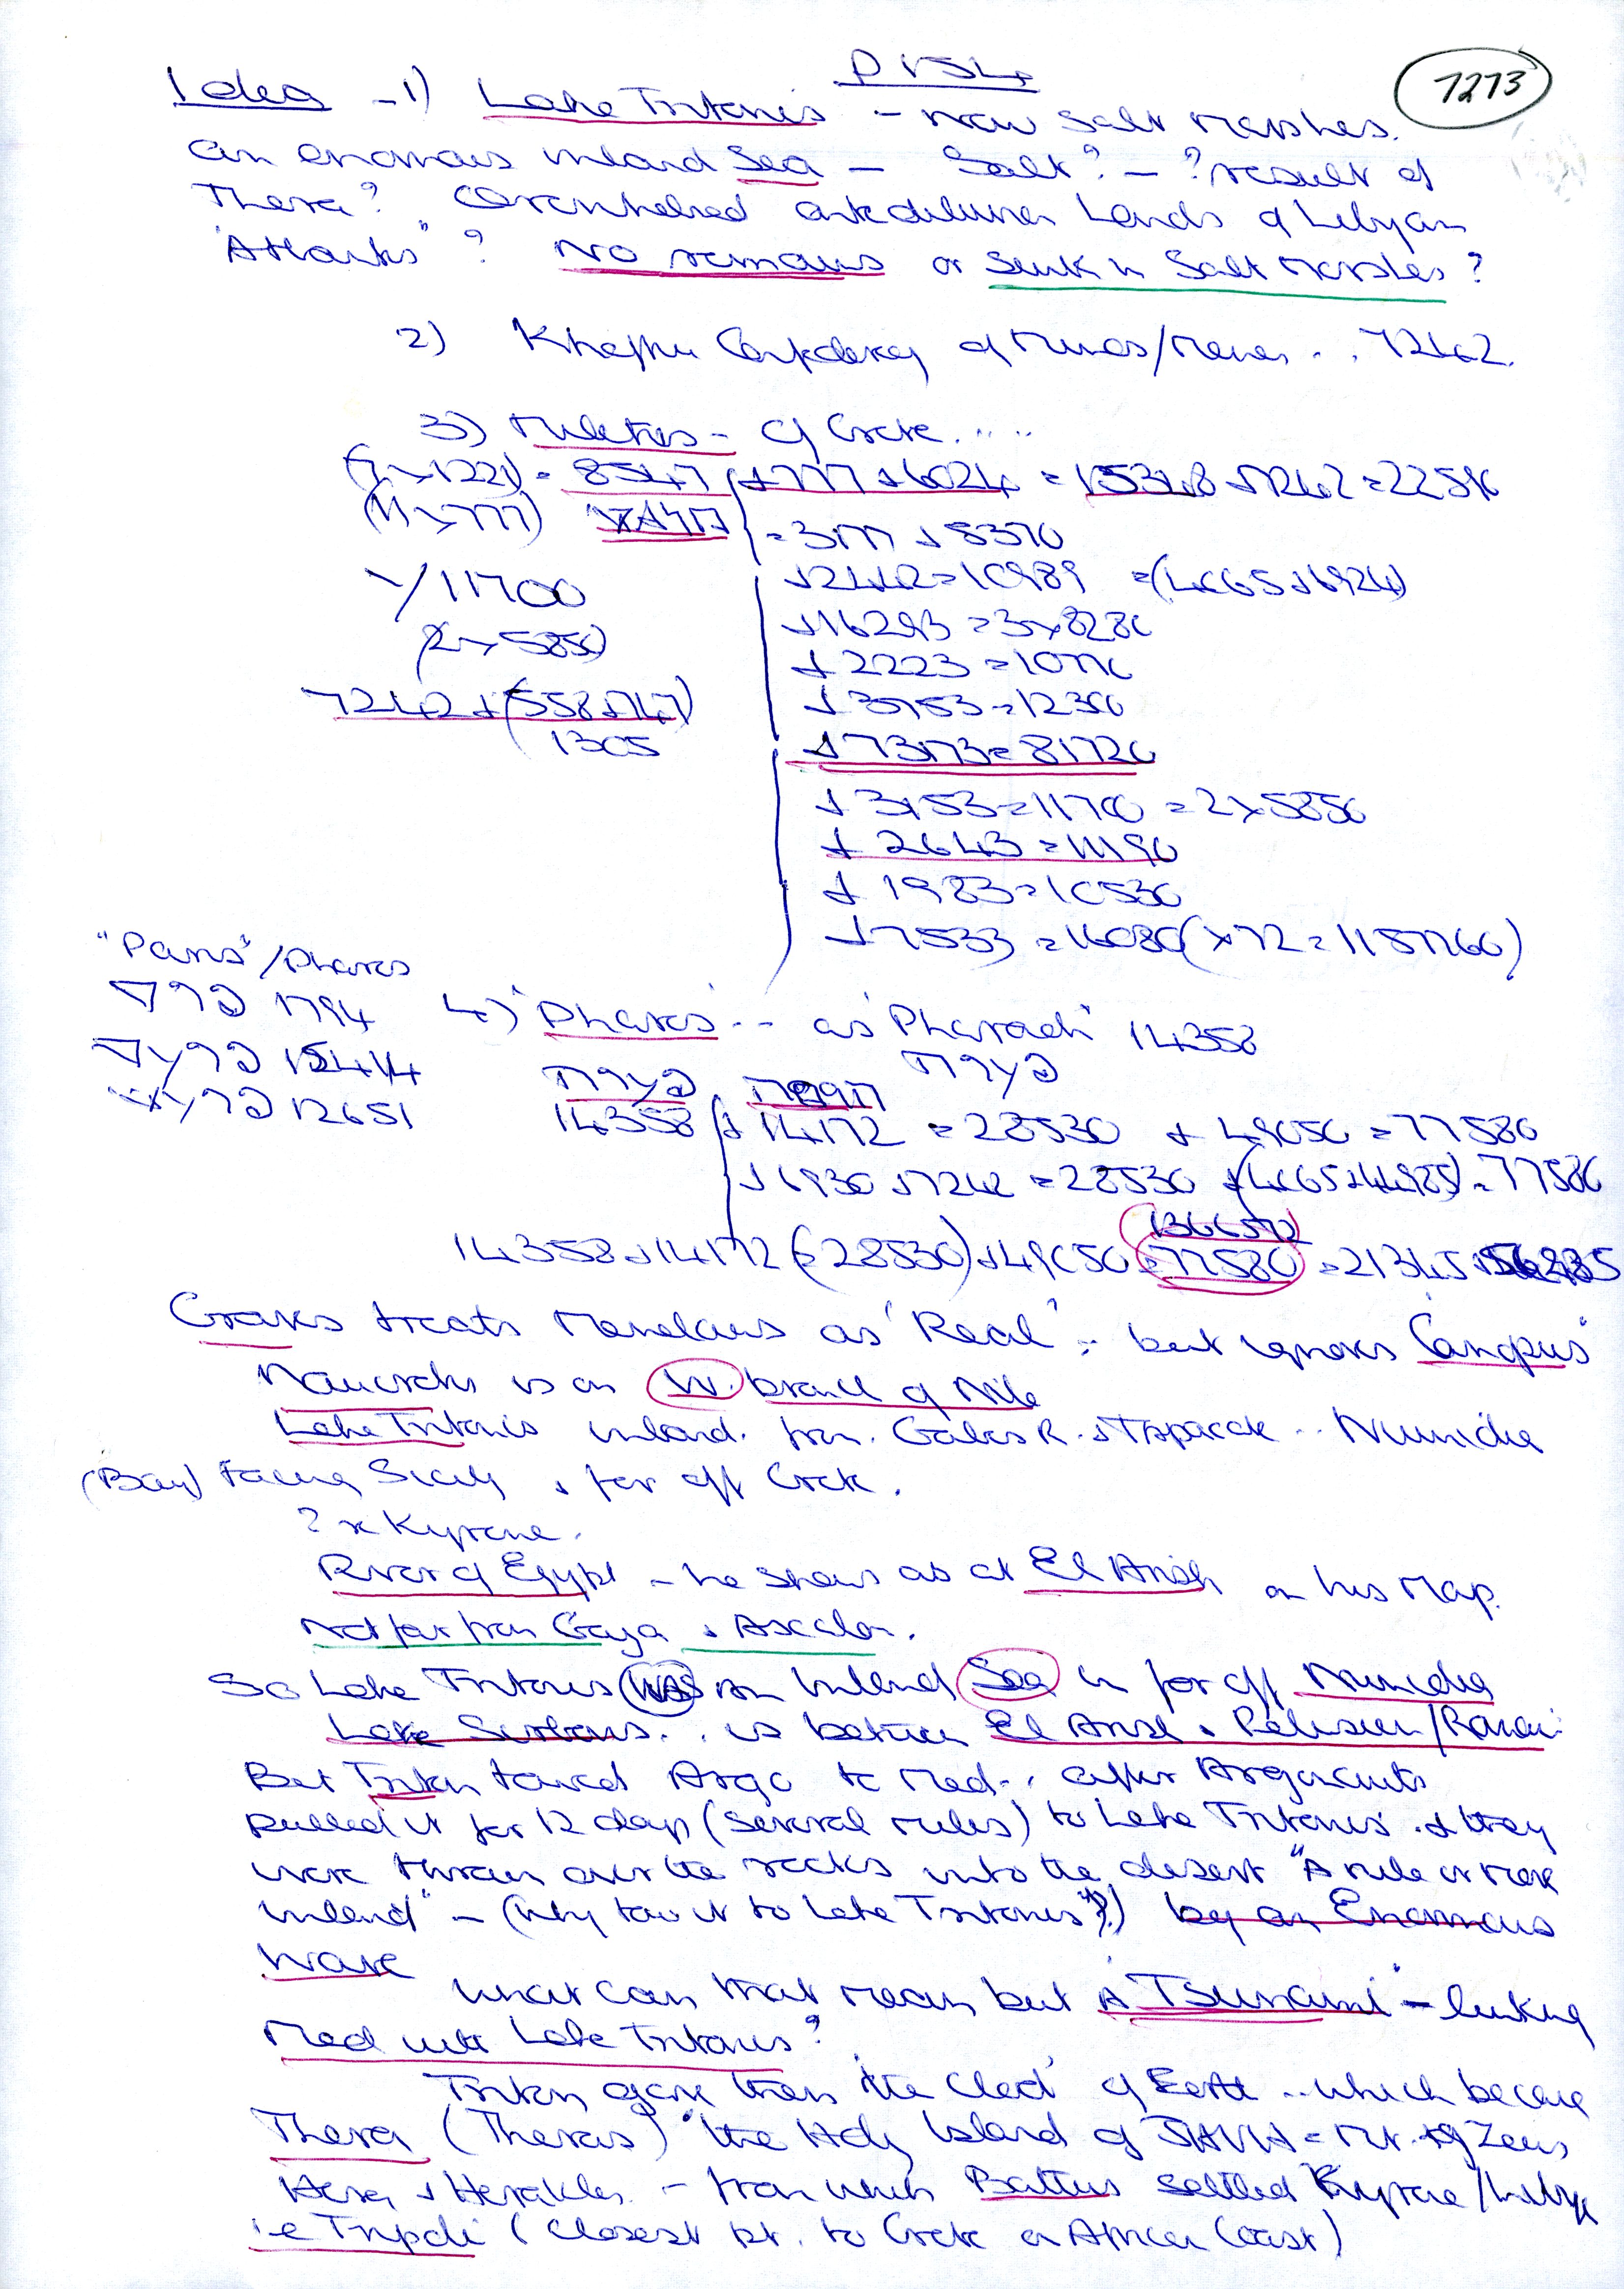 7273
Idea - 1) Lake Tritonis - now salt marshes.
an enormous inland Sea - Salt? - ? result of
Thera? Overwhelmed antediluvian Lands of Libyan
"Atlantis"? No remains or sunk in Salt Marshes?
2) Khafu of Minos/Menes .. 7242.
3) Miletus - of Crete.....
(7x1221) = 8547 + 777 + 6024 = 15348 + 7242 = 22590
(11x777)
= 3177 + 8370
+ 2442 = 10989 = (4065 + 6924)
Y/11700
+ 16293 = 3x8280
(2x5850)
+ 2223 = 10770
7242 + (558 + 747)
+ 3753 = 12300
1305
+ 73173 = 81720
+ 3153 = 11700 = 2x5850
+ 2643 = 11190
+ 1983 = 10530
+ 7533 = 16080 (x 72 = 1157760)
"Paris"/Pharos
1794
4) 'Pharos' .. as 'Pharaoh' 14358
15414
12651
14358 + 14172 = 28530 + 49050 = 77580
+ 6930 + 7242 = 28530 + (4065 + 44985) = 77580
14358 + 14172 (= 28530) + 49050 = 77580 = 21345 + 56235
Graves treats Menelaus as 'Real' - but ignores "Canopus"
Naucratis is on W. branch of Nile
Lake Tritonis inland. from. Gabes R. + Taparak .. Numidia
(Bay) Facing Sicily + far off Crete.
? x Kyrene.
River of Egypt - he shows as at El Arish on his Map.
Not far from Gaza + Ascalon.
So Lake Tritonis was an Inland Sea in far off Numidia
Lake Sirbonis.. is between El Arish + Pelusium/
But Triton towed Argo to Med.. after Argonauts
pulled it for 12 days (several miles) to Lake Tritonis. & they
were thrown over the rocks into the desert "A mile or more
inland" - (Why tow it to Lake Tritonis??) by an Enormous
Wave
What can that mean but A "Tsunami" - linking
Med with Lake Tritonis?
Triton gave them 'the Clod' of Earth .. which became
Thera (Theras) "the Holy Island of = Mt. of Zeus,
Hera + Herakles. - from which Battus settled Kyrene/Libya
i.e Tripoli (closest pt. to Crete on African Coast)